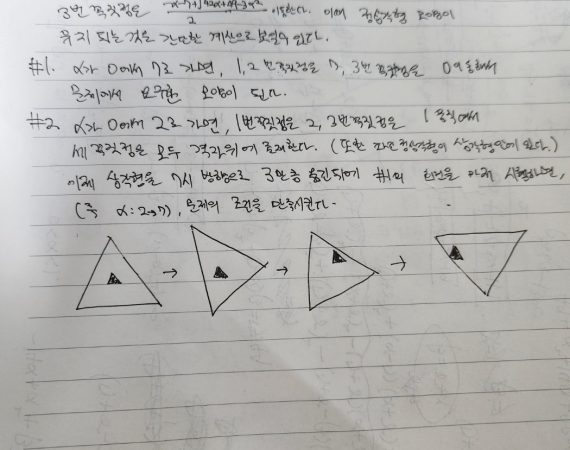 3번 꼭짓점은 2 이동한다. 이때 정삼각형 모양이
유지 되는 것은 간단한 계산으로 보일 수 있다.
#1. α가 0에서 7로 가면, 1, 2번 꼭짓점은 7, 3번 꼭짓점은 0 이동해서
문제에서 요구한 모양이 된다.
#2 α가 0에서 2로 가면, 1번 꼭짓점은 2, 3번 꼭짓점은 1 움직여서
세 꼭짓점은 모두 격자위에 존재한다. (또한 정삼각형이 삼각형안에 있다.)
이제 삼각형을 방향으로 3만큼 옮긴뒤에 #1의 시행하면,
(즉 α: 2→7), 문제의 조건을 만족시킨다.